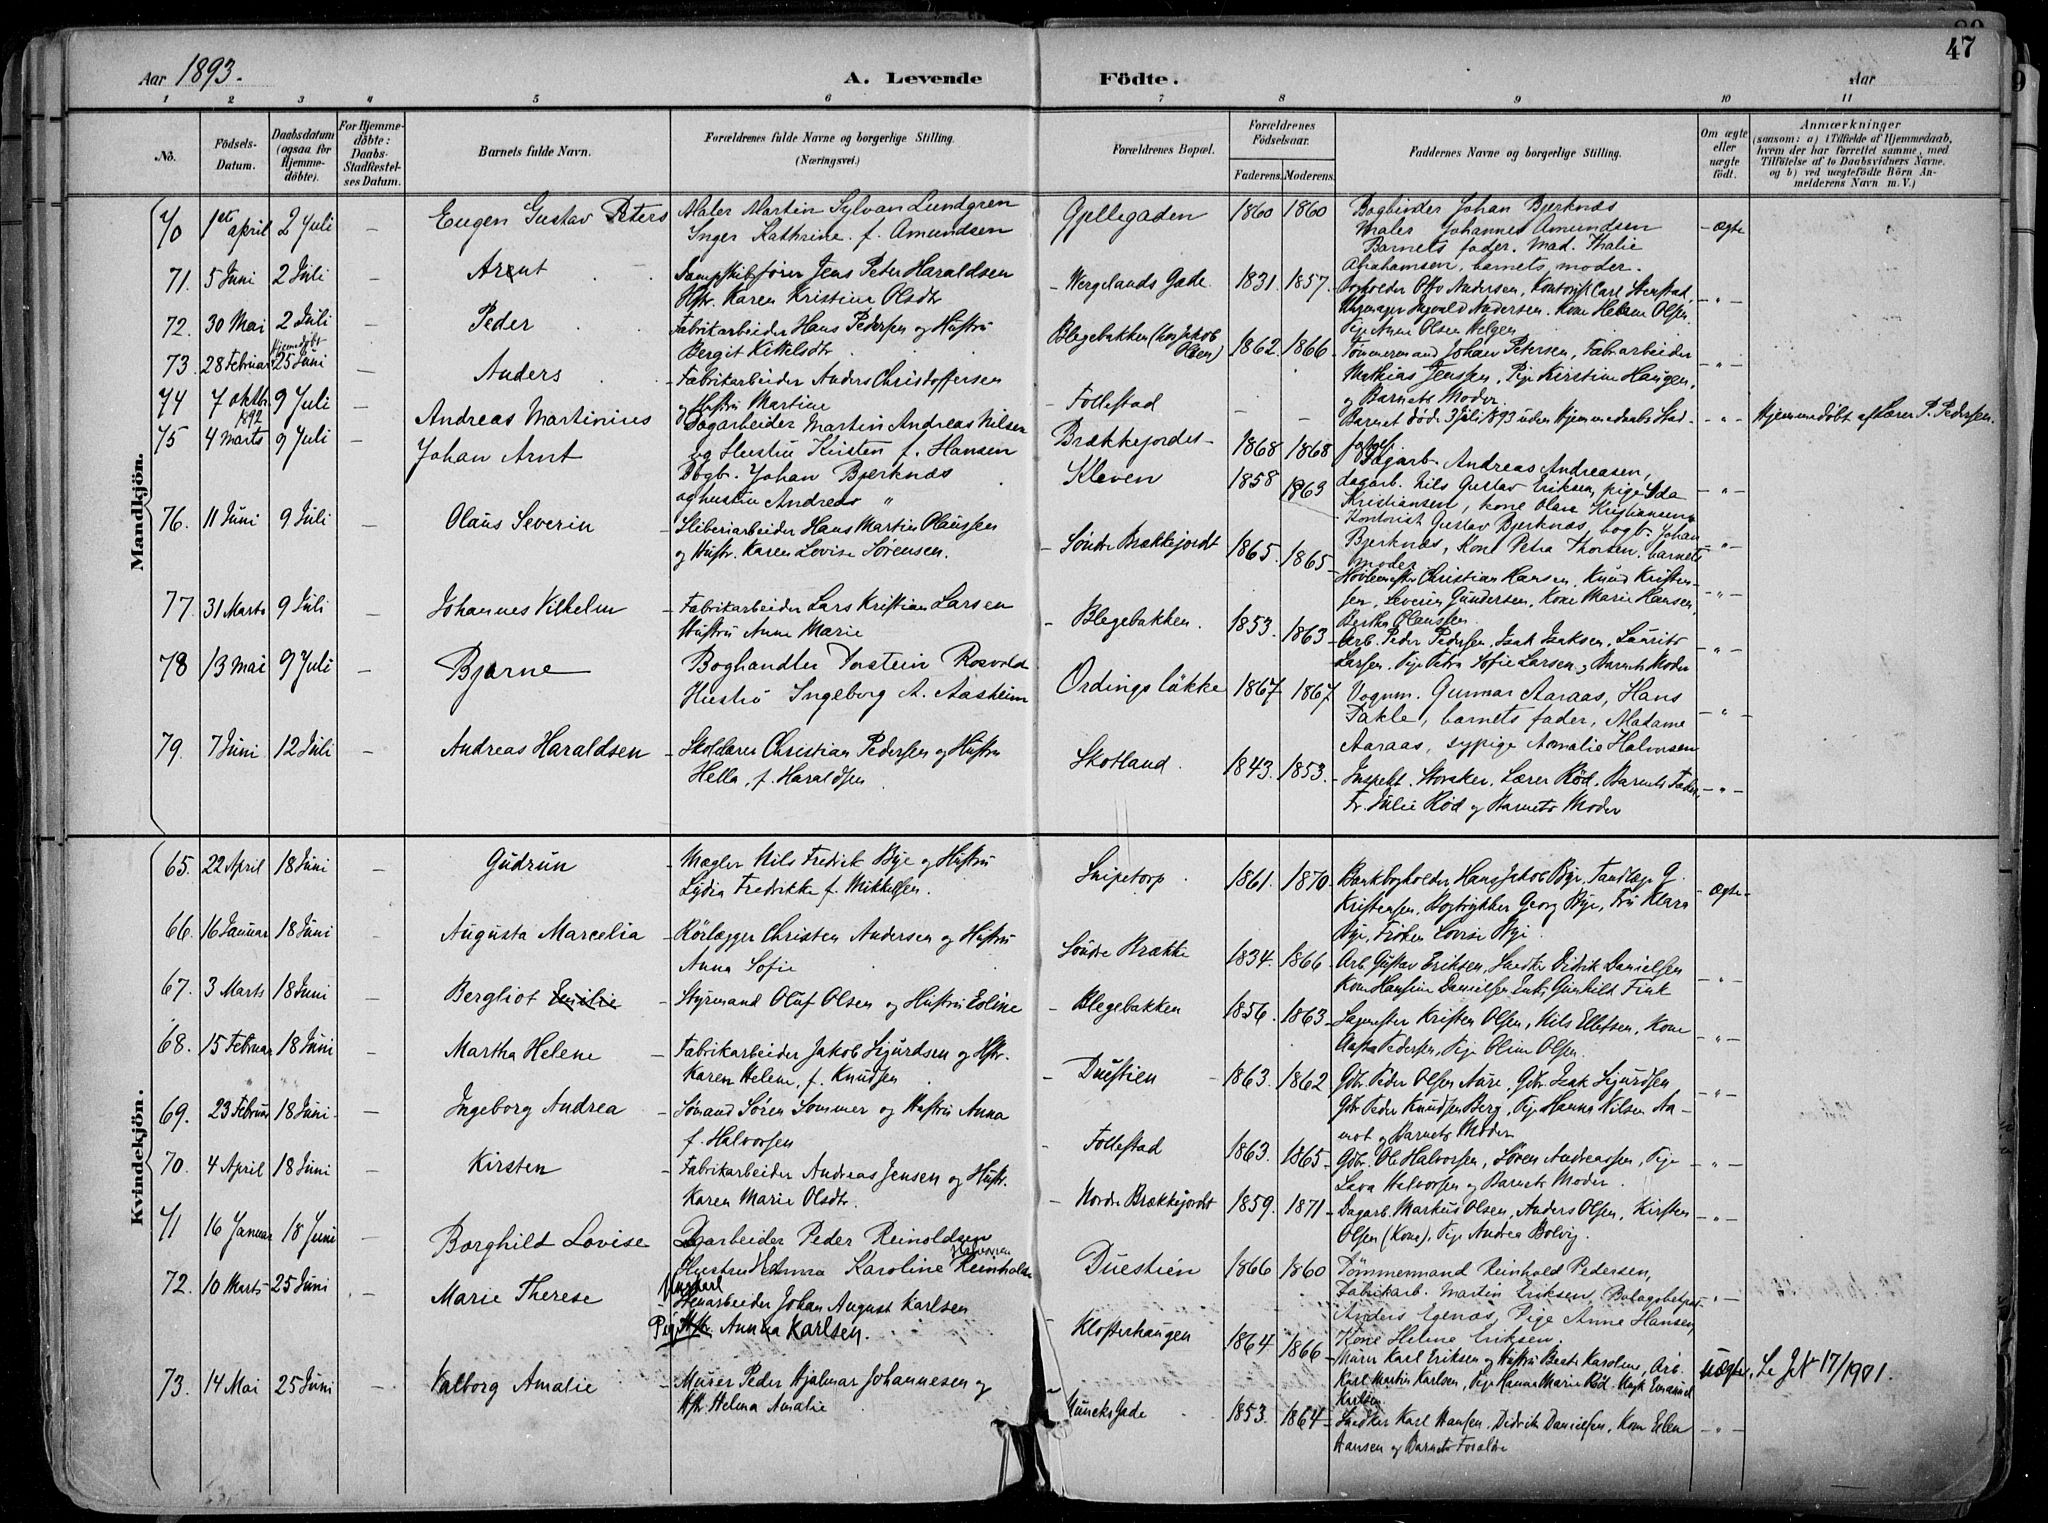 47
Aar 1893.
A. Levende Födte.
Aar
1 2 3 4 5 6 7 8 9 10 11
No.
Födsels-Datum.
Daabsdatum (ogsaa for Hjemme-döbte).
For Hjemme-döbte: Daabs-Stadfæstel-ses Datum.
Barnets fulde Navn.
Forældrenes fulde Navne og borgerlige Stilling. (Næringsvei.)
Forældrenes Bopæl.
Forældrenes Födselsaar.
Faderens. Moderens.
Faddernes Navne og borgerlige Stilling.
Om ægte eller uægte födt.
Anmærkninger
(saasom: a) i Tilfælde af Hjemmedaab, hvem der har forrettet samme, med Tilföielse af to Daabsvidners Navne. og b) ved uægtefödte Börn Anmelderens Navn m. V.)
Mandkjön.
70 1ste april 2 Juli – Eugen Gustav Peters Maler Martin Sylvan Lundgren
Inger Kathrine f. Amundsen
Gjellegaden 1860 1860 Bogbinder Johan Bjerknæs
Maler Johannes Amundsen
Barnets fader. Mad. Thalie
Abrahamsen, barnets moder. – ægte
71. 5 Juni 2 Juli – Arnt – Dampskibsfører Jens Peter Haraldsen
Hstr. Karen Kristine Olsdtr
– Wergelands Gade 1831. 1857. Otto Andersen, Kontorist Carl Stenstad,
Ingvald Andersen. Kone Helene Olsen,
Pige Anne Olsen Helgen – " –
72. 30 Mai 2 Juli – Peder – Fabrikarbeider Hans Pedersen og Hustru
Bergit Kittelsdtr
Blegebakken (hos Jakob Olsen) 1862. 1866 – Tømmermand Johan Petersen, Fabrarbeider
Mathias Jenssen, Pige Kirstine Haugen,
og Barnets Moder – " –
73. 28 Februar Hjemmedøbt 25 Juni – Anders – Fabrikarbeider Anders Christoffersen
og Hustru Martine
– Follestad – – Barnet død 3 Juli 1893 uden Hjemmedaabs Stad-
fæstelse. – " – Hjemmedøbt af Lærer P. Pedersen.
74 7 oktbr. 1892 9 Juli – Andreas Martinius Dagarbeider Martin Andreas Nilsen
og Hustru Kirsten f. Hansen
Brækkejordet – 1868 1868 Dagarb. Andreas Andreasen,
dagarb. Nils Gustav Eriksen, pige Ida
Kristiansen, kone Olava Kristiansen – " –
75 4 Marts 9 Juli Johan Arnt Bogb. Johan Bjerknæs
og hustru Andrea "
Kleven 1858 1863 Kontorist Gustav Bjerknæs, bogb. Johan
Bjerknæs, Kone Petra Thorsen, barnets
moder – " –
76. 11 Juni 9 Juli – Olaus Severin – Sliberiarbeider Hans Martin Olaussen
og Hustr. Karen Lovise Sørensen.
– Søndre Brækkejordt 1865. 1865 – Høvlemester Christian Hansen, Knud Kristen-
sen, Severin Gundersen, Kone Marie Hansen,
Bertha Olaussen – " –
77. 31 Marts 9 Juli – Johannes Vilhelm – Fabrikarbeider Lars Kristian Larsen
Hustru Anne Marie
– Blegebakken. 1853. 1863 – Arb. Peder Pedersen, Isak Isaksen, Laurits
Larsen. Pige Petra Sofie Larsen og Barnets Moder – " –
78 13 Mai 9 Juli – Bjarne Boghandler Torstein Rosvold
Hustru Ingeborg A. Aasheim
Ordings løkke 1867. 1867. Vognm. Gunnar Aaraas, Hans
Takle, barnets fader, Madame
Aaraas, sypige Amalie Halvorsen – " –
79. 7 Juni 12 Juli – Andreas Haraldsen – Skolelærer Christian Pedersen og Hustru
Hella, f. Haraldsen
– Skotland. 1843. 1853. – Inspekt. Storaker. Lærer Rød, Barnets Fader,
Fr. Julie Rød og Barnets Moder – " –
Kvindekjön.
65. 22 April 18 Juni – Gudrun – Mægler Nils Fredrik Bye og Hustru
Lydia Fredrikke f. Mikkelsen.
– Snipetorp 1861. 1870. – Bankbogholder Hans Jakob Bye, Tandlæge G.
Kristensen, Bogtrykker Georg Bye, Fru Klara
Bye, Frøken Lovise Bye. – ægte –
66. 16 Januar 18 Juni – Augusta Marcelia – Rørlægger Christen Andersen og Hustru
Anna Sofie
Søndre Brække 1834. 1866 – Arb. Gustav Eriksen, Snedker Didrik Danielsen
Kone Hansine Danielsen Enke Gunhild Fink – " –
67. 3 Marts 18 Juni – Bergliot Emilie – Styrmand Oluf Olsen og Hustru Eoline
– Blegebakken 1856. 1863 – Sagmester Kristen Olsen, Nils Ellefsen, Kone
Aasta Pedersen, Pige Oline Olsen. – " –
68. 15 Februar 18 Juni – Martha Helene – Fabrikarbeider Jakob Sigurdsen og Hstr.
Karen Helene, f. Knudsen
– Duestien – 1863. 1862 – Gbr. Peder Olsen Aure, Gbr. Isak Sigurdsen
Gbr. Peder Knudsen Berg, Pige Hanna Nilsen Aa-
mot og Barnets Moder – " –
69. 23 Februar 18 Juni. – Ingeborg Andrea – Sømand Søren Sommer og Hustru Anna
f. Halvorsen
– Follestad 1863. 1865 – Gbr. Ole Halvorsen, Søren Andreassen, Pige
Lava Halvorsen og Barnets Moder. – " –
70. 4 April 18 Juni – Kirsten – Fabrikarbeider Andreas Jensen og Hustr.
Karen Marie Olsdtr.
– Nordre Brækkejordet 1859. 1871 – Dagarb. Markus Olsen, Anders Olsen, Kirsten
Olsen (Kone), Pige Andrea Bolvig. – " –
71 16 Januar 18 Juni Borghild Lovise Dgarbeider Peder Reinoldsen
Hustru Emma Karoline
Duestien 1866 1860 Tømmermand Reinhold Pedersen,
Fabrikarb. Martin Eriksen,
Anders Egenæs, Pige Anne Hansen,
Kone Helene Eriksen. – " –
72. 10 Marts 25 Juni – Marie Therese Ungkarl
– Stenarbeider Johan August Karlsen
Pige Hstr. Anna Karlsen.
– Klosterhaugen 1864 1866 – Murer Karl Eriksen og Hustru Beate Karoline, Arb.
Karl Martin Karlsen, Pige Hanna Marie Rød. Ungk. Emanuel
Karlsen uægte. Se J.N. 17/1901.
73. 14 Mai 25 Juni – Valborg Amalie – Murer Peder Hjalmar Johannesen og
Hstr. Helma Amalie
– Muncks Gade 1853. 1864 – Snedker Karl Hansen, Didrik Danielsen, Kone Elen
Hansen og Barnets Forældre – " –